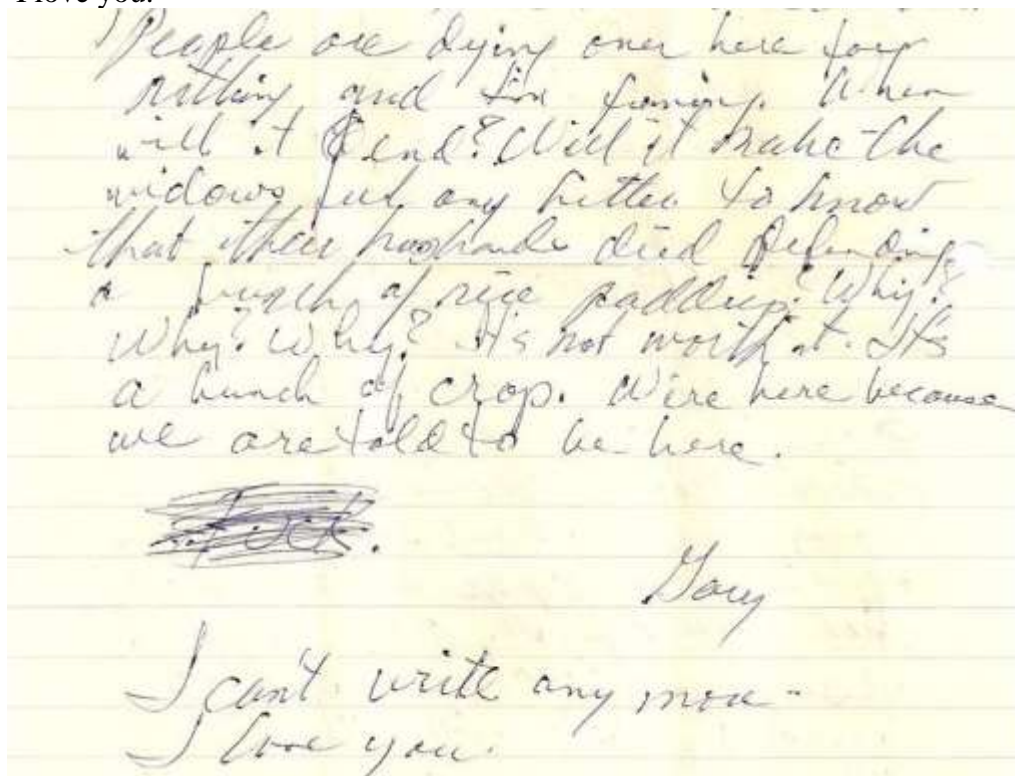 I love you.
People are dying over here for
nothing and for
will it end? Will it make the
widows feel any better to know
that their husbands died defending
a bunch of rice paddies? Why?
Why? Why? It's not worth it. It's
a bunch of crap. We're here because
we are told to be here.
Gary
I can't write any more -
I love you.